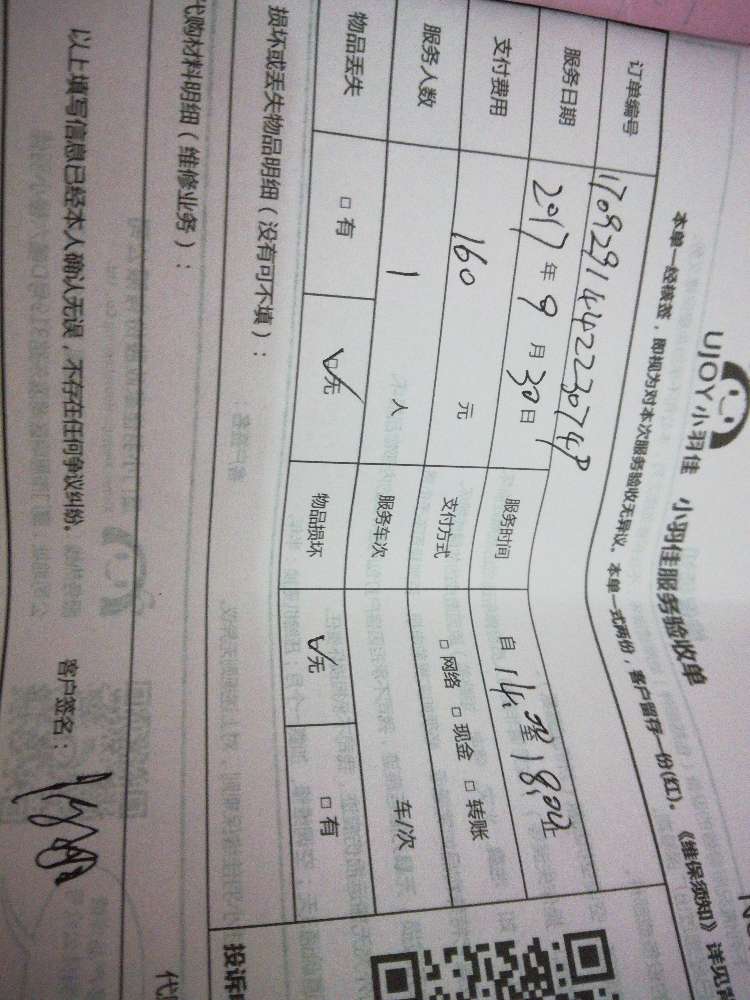 UJOY小羽佳 小羽佳服务验收单
本单一经核签，即视为对本次服务验收无异议。本单一式两份，客户留存一份(红)。《维保须知》详见背
订单编号
服务日期 2017年9月30日 服务时间 自14:02至18:02止
支付费用 160 元 支付方式 □网络 □现金 □转账
服务人数 1 人 服务车次 车/次
物品丢失 □有 ☑无 物品损坏 ☑无 □有
损坏或丢失物品明细（没有可不填）：
代购材料明细（维修业务）：
以上填写信息已经本人确认无误，不存在任何争议纠纷。 客户签名：
投诉